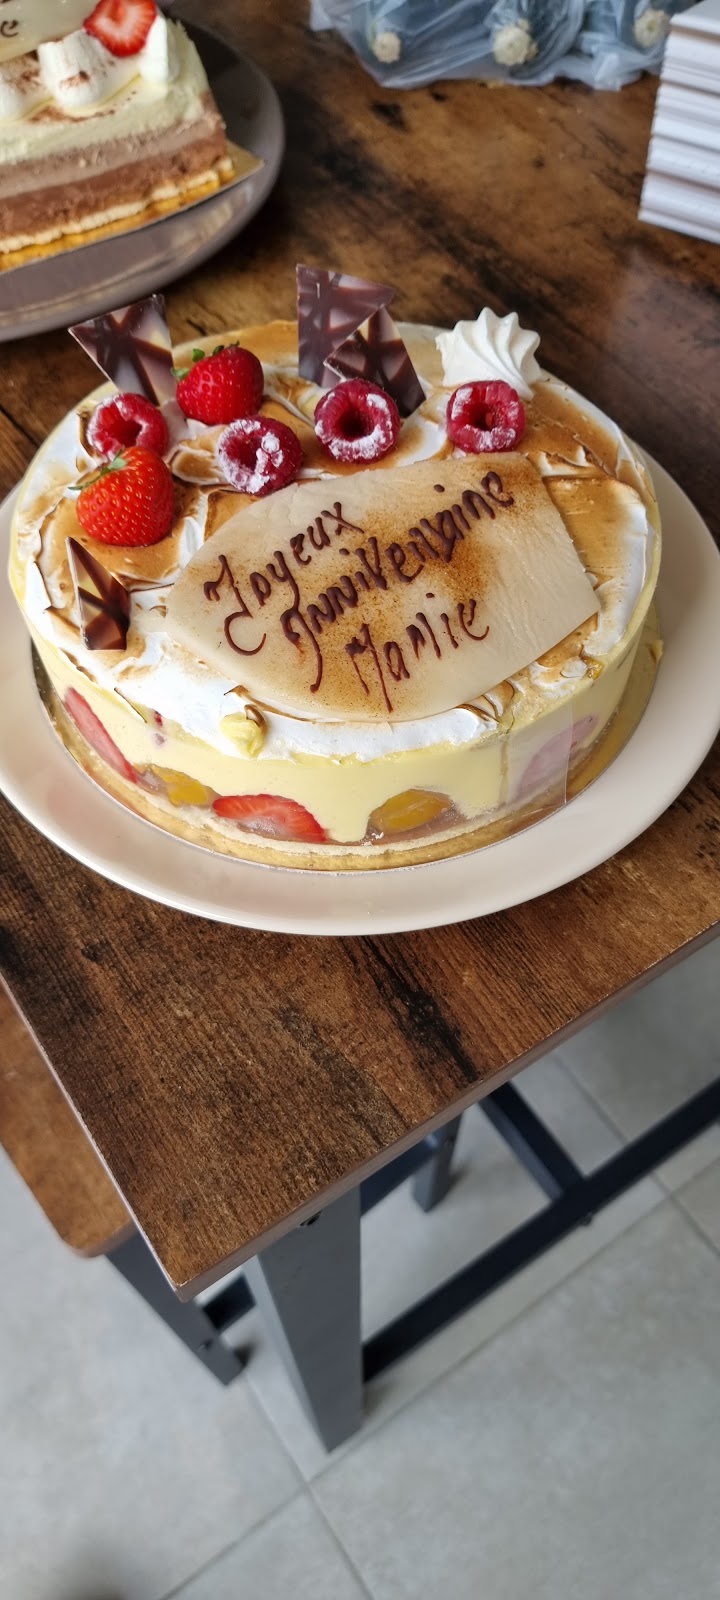 Joyeux
Anniversaire
Mamie
e